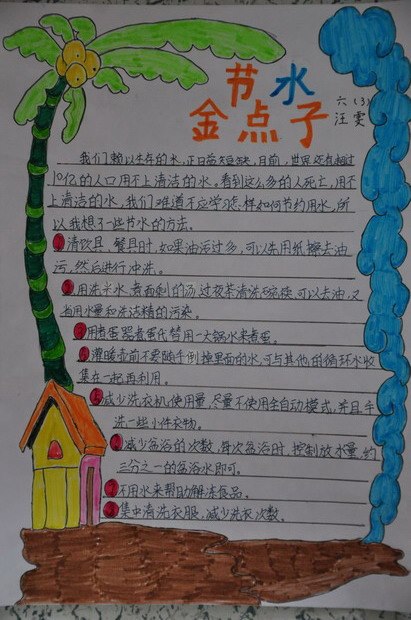 节水
金点子
六（3）
汪雯
我们赖以生存的水，正日益短缺，目前，世界还有超过
10亿的人口用不上清洁的水。看到这么多的人死亡，用不
上清洁的水，我们难道不应学习怎样如何节约用水，所
以我想了一些节水的方法。
清饮具、餐具时，如果油污过多，可以先用纸擦去油
污，然后进行冲洗。
用洗米水、煮面剩的汤、过夜茶清洗碗筷，可以去油，又
用水量和洗洁精的污染。
用煮蛋器煮蛋代替用一大锅水来煮蛋。
灌暖壶前不要随手倒掉里面的水，可与其他的循环水收
集在一起再利用。
减少洗衣机使用量，尽量不使用全自动模式，并且手
洗一些小件衣物。
减少盆浴的次数，每次盆浴时，控制放水量，约
三分之一的盆浴水即可。
不用水来帮助解冻食品。
集中清洗衣服，减少洗衣次数。